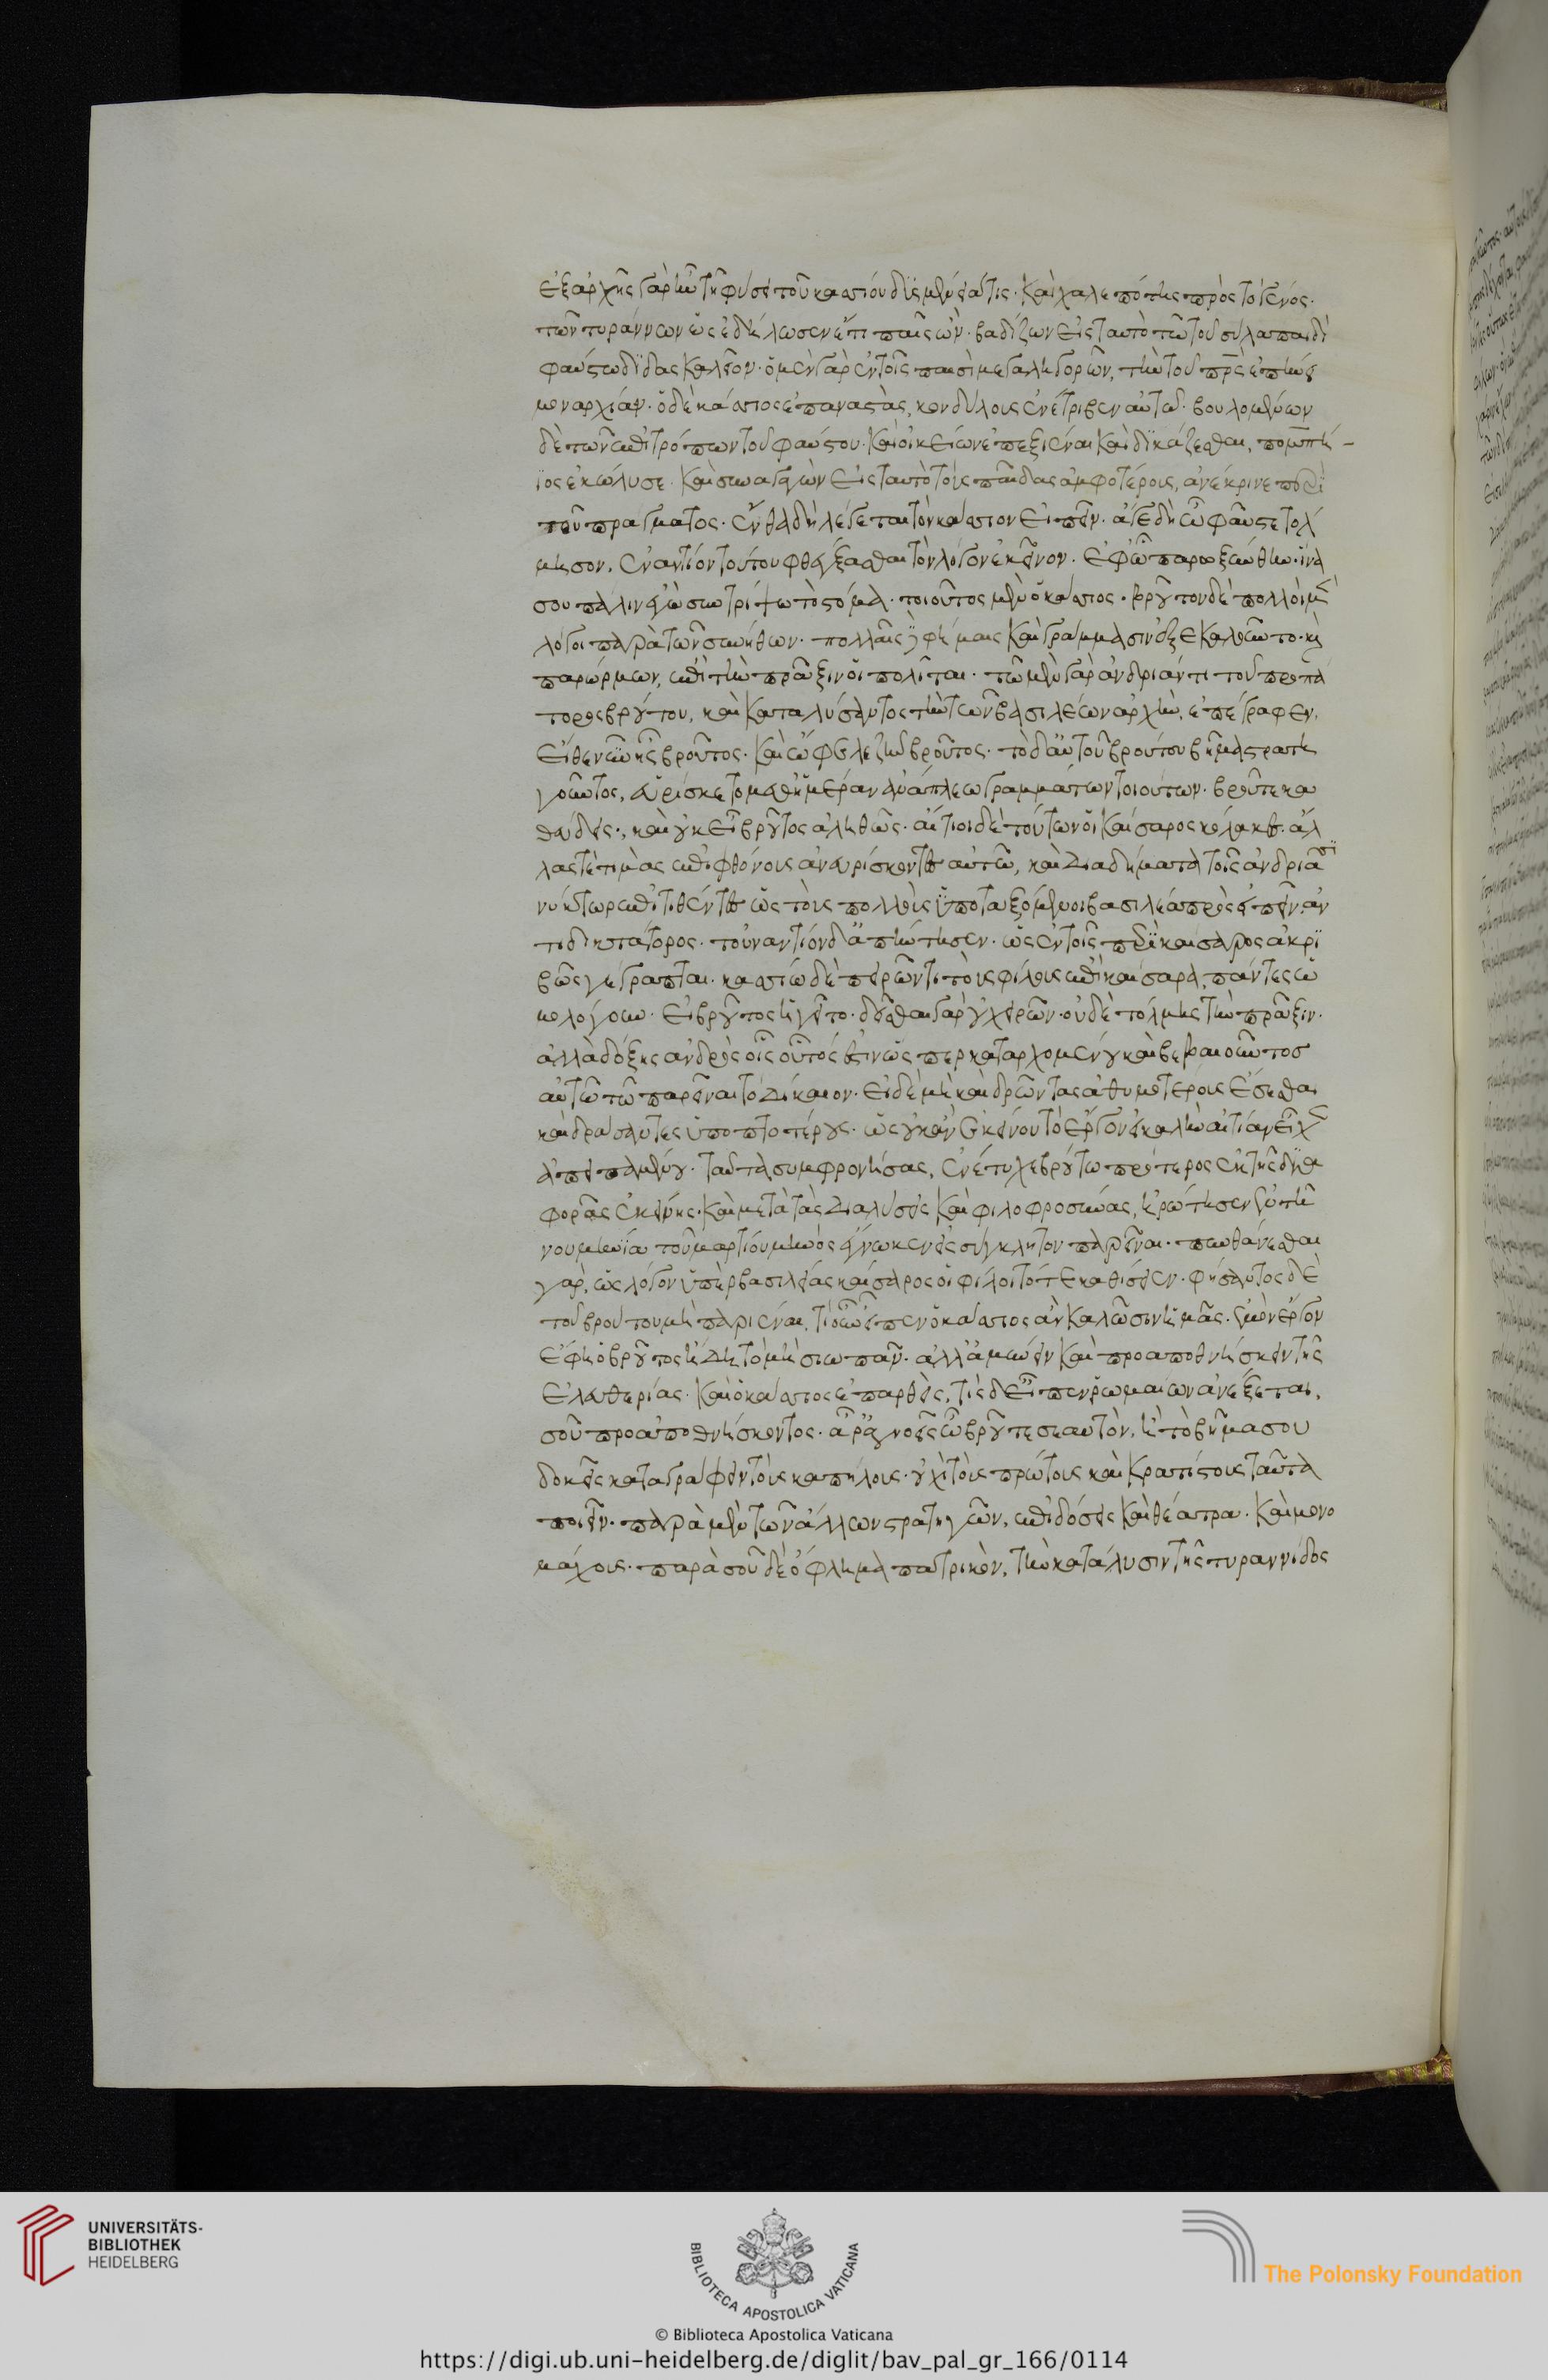 ἐξ ἀρχῆς γὰρ ἦν τῆ φύσει τοῦ κασσίου δυσμένειά τις· καὶ χαλεπότης πρὸς τὸ γένος·
τῶν τυράννων ὡς ἐδήλωσεν ἔτι παῖς ὤν· βαδίζων εἰς ταυτὸ τῶ τοῦ σύλα παιδὶ
φαύστω διδασκαλεῖον· ὁ μὲν γὰρ ἐν τοῖς παισὶ μεγαληγορῶν, τὴν τοῦ πρς ἐπήνει
μοναρχίαν· ὁ δὲ κάσσιος ἐπαναστὰς, κονδύλους ἐνέτριβεν αὐτῶ· βουλομένων
δὲ τῶν ἐπιτρόπων τοῦ φαύστου· καὶ οἰκείων ἐπεξιέναι καὶ δικάζεσθαι, πομπή–
ϊος ἐκώλυσε· καὶ συναγαγὼν εἰς ταυτὸ τοὺς παῖδας ἀμφοτέρους, ἀνέκρινε περὶ
τοῦ πράγματος· ἔνθα δὴ λέγεται τὸν κάσσιον εἰπεῖν· ἄγε δὴ ὦ φαῦστε τόλ
μησον, ἐναντίον τούτου φθέγξασθαι τὸν λόγον ἐκεῖνον· ἐφ' ὧ παρωξύνθην· ἵνα
σου πάλιν ἐγὼ συντρίψω τὸ στόμα· τοιοῦτος μὲν ὁ κάσσιος· βροῦτον δὲ πολλοὶ μὲν
λόγοι παρὰ τῶν συνήθων· πολλαῖς φήμαις καὶ γράμμασιν ἐξεκαλοῦντο· κ
παρώρμων, ἐπὶ τὴν πρᾶξιν οἱ πολῖται· τῶ μὲν γὰρ ἀνδριάντι τοῦ προπά
τορος βρούτου, καὶ καταλύσαντος τὴν τῶν βασιλέων ἀρχὴν, ἐπέγραφεν,
εἴθε νῦν ἦς βροῦτος· καὶ ὤφελε ζῆν βροῦτος· τὸ δ' αὐτοῦ βρούτου βῆμα στρατη
γοῦντος, εὑρίσκετο μαθ' ἡμέραν ἀνάπλεω γραμμάτων τοιούτων· βροῦτε κα
θεύδεις·, καὶ οὐκ εἶ βροῦτος ἀληθῶς· αἴτιοι δὲ τούτων οἱ καίσαρος κόλακες· ἄλ
λας τὲ τιμὰς ἐπιφθόνους ἀνευρίσκοντες αὐτῶ, καὶ διαδήματα τοῖς ἀνδριᾶσϊ
νύκτωρ ἐπιτιθέντες ὡς τοὺς πολλοὺς ὑποταξόμενοι βασιλέα προσειπεῖν· ἀν
τὶ δικτάτορος· τοὐναντίον δ' ἀπήντησεν· ὡς ἐν τοῖς περὶ καίσαρος ἀκρι
βῶς γέγραπται· κασσίω δὲ πειρῶντι τοὺς φίλους ἐπὶ καίσαρα, πάντες ὡ
μολόγουν· εἰ βροῦτος ἡγεῖτο· δεῖσθαι γὰρ οὐ χειρῶν· οὐδὲ τόλμης τὴν πρᾶξιν·
ἀλλὰ δόξης ἀνδρὸς οἷς οὗτός ἐστιν ὥσπερ καταρχομένου καὶ βεβαιοῦντος
αὐτῶ τῶ παρεῖναι τὸ δίκαιον· εἰ δὲ μὴ καὶ δρῶντας ἀθυμοτέρους ἔσεσθαι
καὶ δράσαντες ὑποπτοτέρους· ὡς οὐκ ἂν ἐκείνου τὸ ἔργον εἰ καλὴν αἰτίαν εἶχεν
ἀπειπαμένου· ταῦτα συμφρονήσας, ἐνέτυχε βρούτω πρότερος ἐκ τῆς δια
φορᾶς ἐκείνης· καὶ μετὰ τὰς διαλύσεις καὶ φιλοφροσύνας, ἠρώτησεν εἰ τῆ
νουμηνία τοῦ μαρτίου μηνὸς ἔγνωκεν εἰς σύγκλητον παρεῖναι· πυνθάνεσθαι
γὰρ, ὡς λόγον ὑπὲρ βασιλείας καίσαρος οἱ φίλοι τότε καθίσειεν· φήσαντος δὲ
τοῦ βρούτου μὴ παριέναι, τί οὖν εἶπεν ὁ κάσσιος ἂν καλῶσιν ἡμᾶς· ἐμὸν ἔργον
ἔφη ὁ βροῦτος ἤδη τὸ μὴ σιωπᾶν· ἀλλ' ἀμύνειν καὶ προαποθνήσκειν τῆς
ἐλευθερίας· καὶ ὁ κάσσιος ἐπαρθεὶς, τίς δ' εἶπεν ῥωμαίων ἀνέξεται,
σοῦ προαποθνήσκοντος· ἆρ' ἀγνοεῖς ὦ βροῦτε σεαυτὸν, ἢ τὸ βῆμα σου
δοκεῖς καταγράφειν τοὺς καπήλους· οὐχὶ τοὺς πρώτους καὶ κρατίστους ταῦτα
ποιεῖν· παρὰ μὲν τῶν ἄλλων στρατηγῶν, ἐπιδόσεις καὶ θέατρα· καὶ μονο
μάχους· παρὰ σοῦ δὲ ὄφλημα πατρικὸν, τὴν κατάλυσιν τῆς τυραννίδος
UNIVERSITÄTS-
BIBLIOTHEK
HEIDELBERG
BIBLIOTECA APOSTOLICA VATICANA
The Polonsky Foundation
© Biblioteca Apostolica Vaticana
https://digi.ub.uni-heidelberg.de/diglit/bav_pal_gr_166/0114